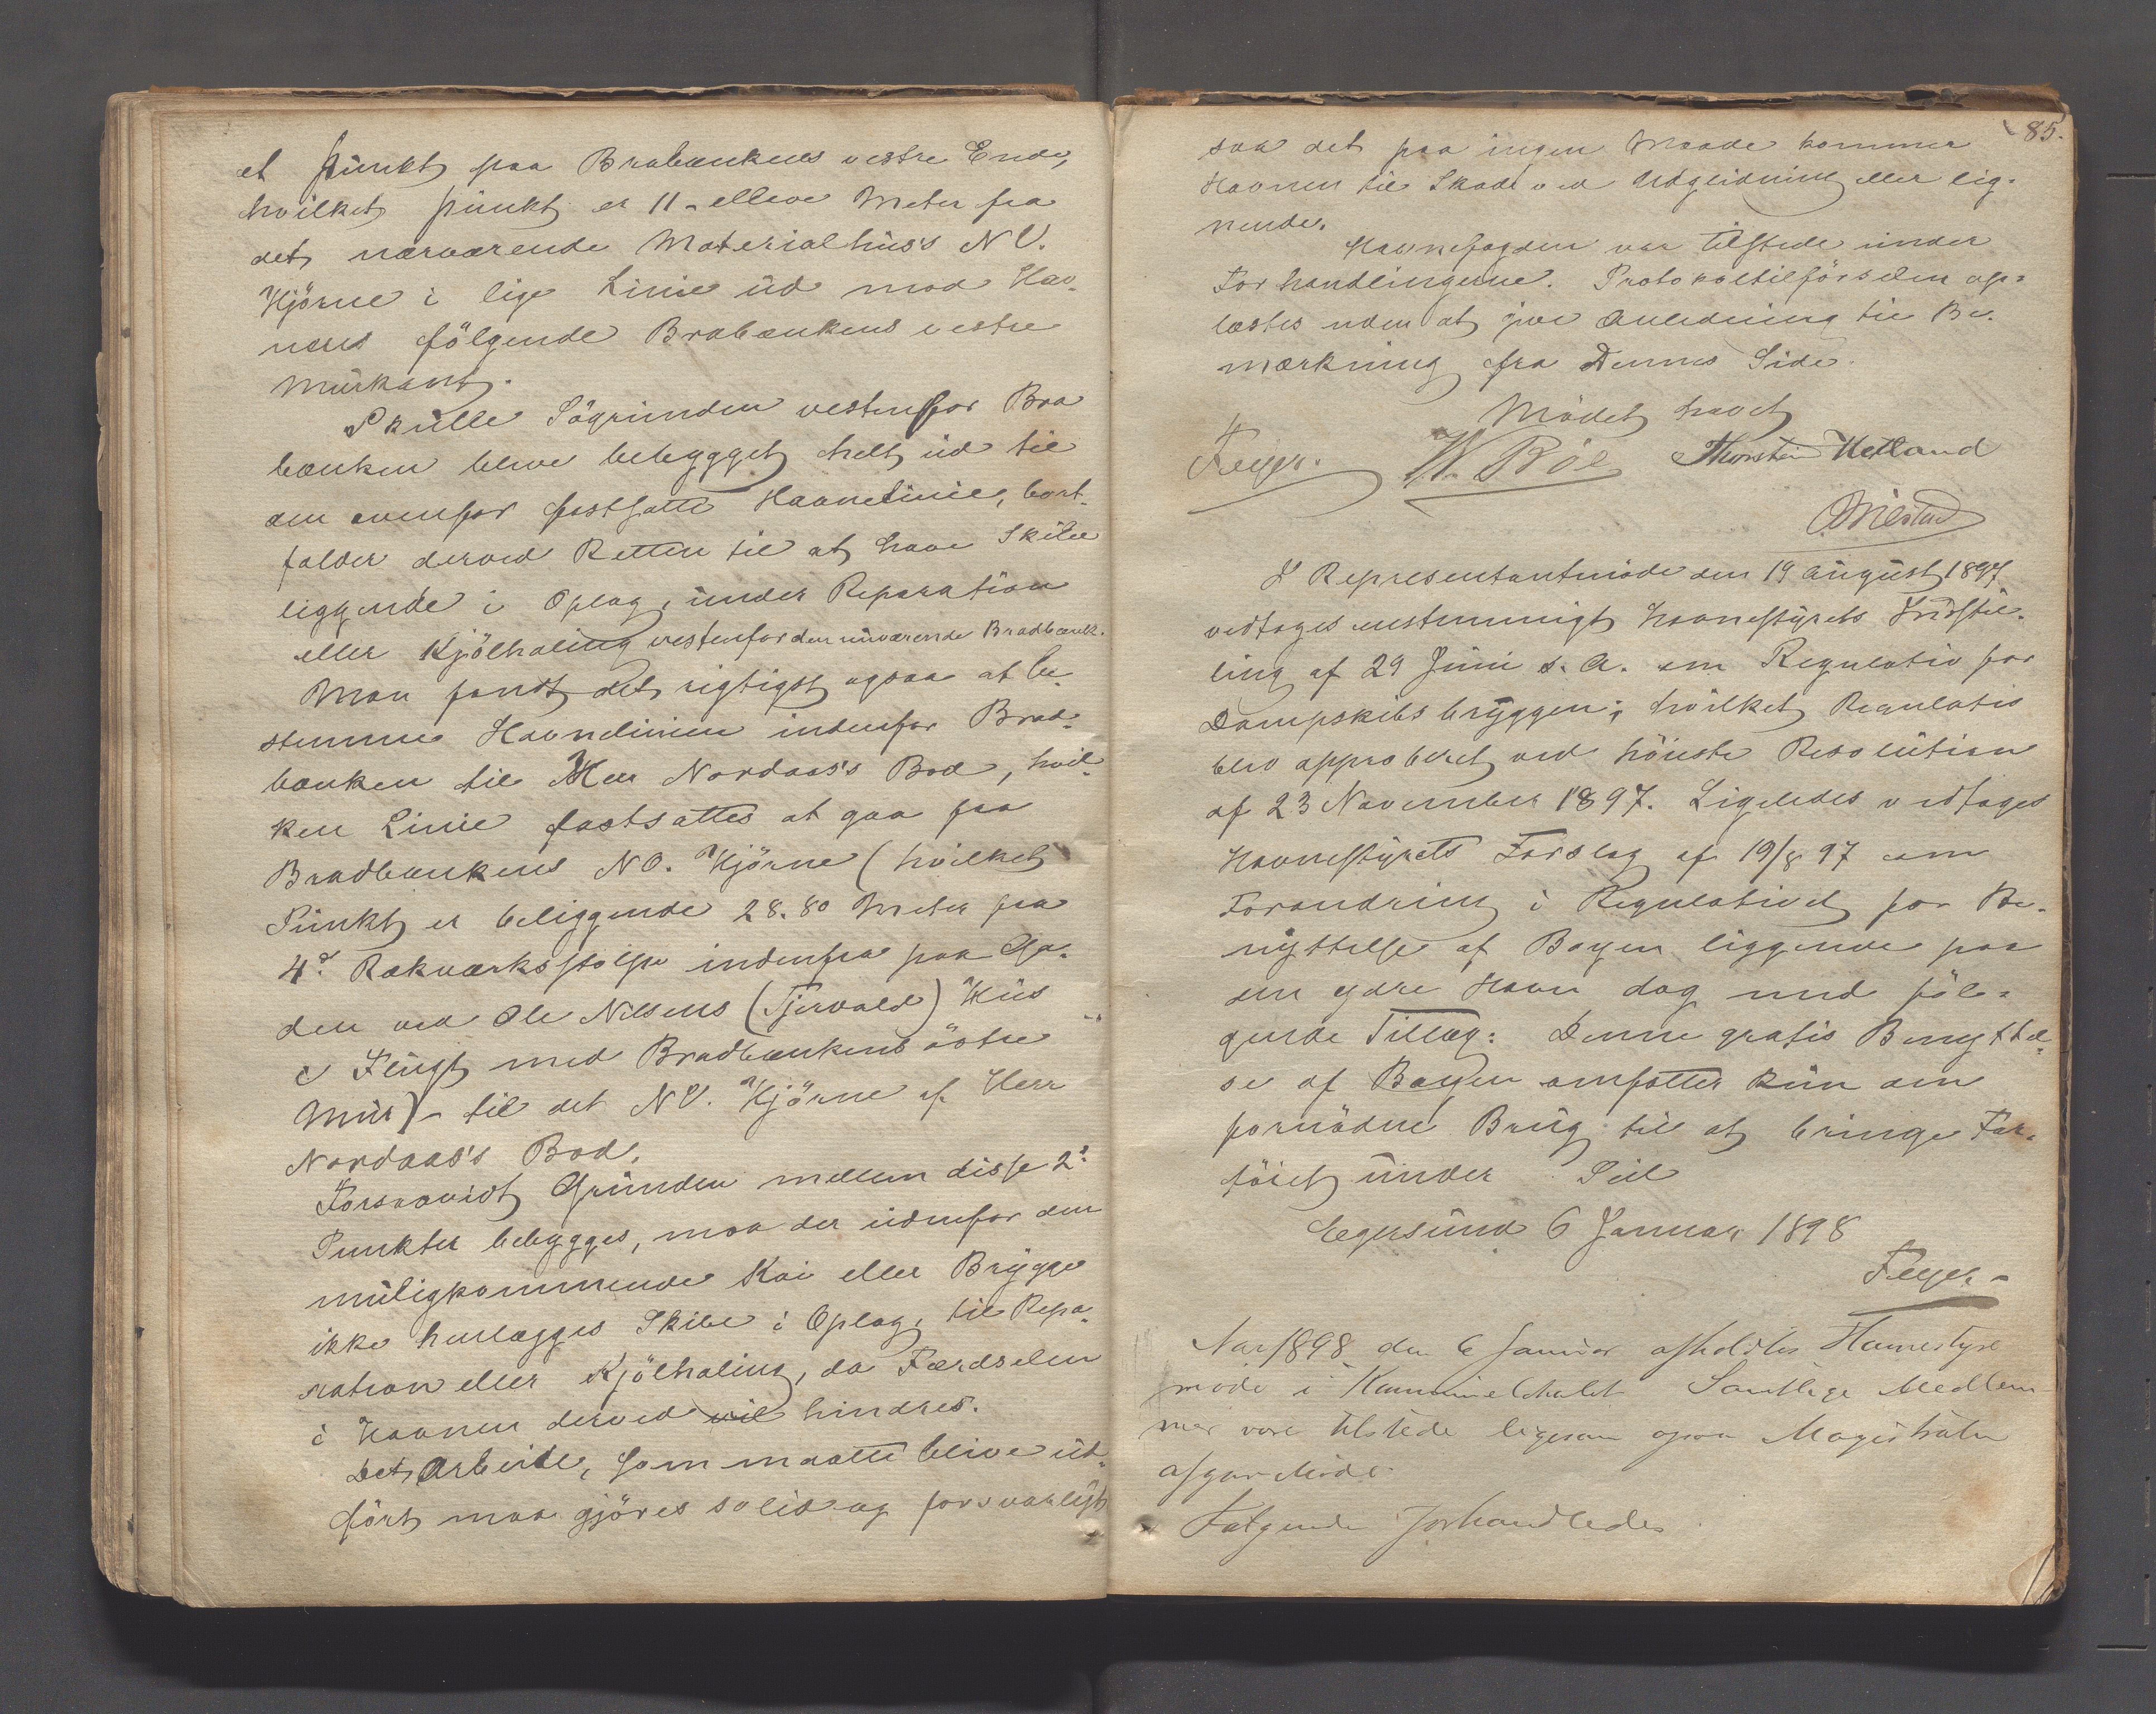 et punkt paa Brabænkens vestre Ende,
hvilket punkt er 11 - elleve Meter fra
det nærværende Materialhus's NV.
Hjörne i lige Linie ud mod Hav-
nens fölgende Brabænkens vestre
Murkant.
Skulle Sögrunden vestenfor Bra
bænken blive bebygget helt ud til
den ovenfor fastsatte Havnelinie, bort-
falder derved Retten til at have Skibe
liggende i Oplag, under Reparation
eller Kjölhaling vestenfor den nuværende Bradbænk.
Man fandt det rigtigst ogsaa at be-
stemme Havnelinien indenfor Brad-
bænken til Herr Nordaas's Bod, hvil-
ken Linie fastsattes at gaa fra
Bradbænkens NO. Hjörne (hvilket
Punkt er beliggende 28.80 Meter fra
4de Rækværksstolpe indenfra paa Ga-
den ved Ole Nilsens (Tjervald) Hus
i Flugt med Bradbænkens östre
Mur) - til det NV. Hjörne af Herr
Nordaas's Bod.
Forsaavidt Grunden mellem disse 2de
Punkter bebygges, maa der udenfor den
muligkommende Kai eller Brygge
ikke henlægges Skibe i Oplag, til Repa-
ration eller Kjölhaling, da Færdselen
i Havnen derved vil hindres.
Det Arbeide, som maatte blive ud-
fört maa gjöres solid og forsvarligt
85.
saa det paa ingen Maade kommer
Havnen til Skade ved Udglidning eller lig-
nende.
Havnefogden var tilstede under
Forhandlingerne. Protokoltilförselen op-
læstes uden at give Anledning til Be-
mærkning fra Dennes Side.
Mödet hævet
Feyer. W. Böe Thorstein Hetland
I Representantmöde den 19 August 1897
vedtoges enstemmigt Havnestyrets Indstil-
ling af 29 Juni s. A. om Regulativ for
Dampskibsbryggen; hvilket Regulativ
blev approberet ved höieste Resolution
af 23 November 1897. Ligeledes vedtoges
Havnestyrets Forslag af 19/8 97 om
Forandring i Regulativet for Be-
nyttelse af Bøyen liggende paa
den ydre Havn dog med föl-
gende Tillæg: Denne gratis Benyttel-
se af Bøyen omfatter kun den
fornödne Brug til at bringe Far-
töiet under Seil
Egersund 6 Januar 1898
Feyer -
Aar 1898 den 6 Januar afholdtes Havnestyre
möde i Kommunelokalet Samtlige Medlem
mer vare tilstede ligesom ogsaa Magistraten
afgav Möde
Følgende forhandledes